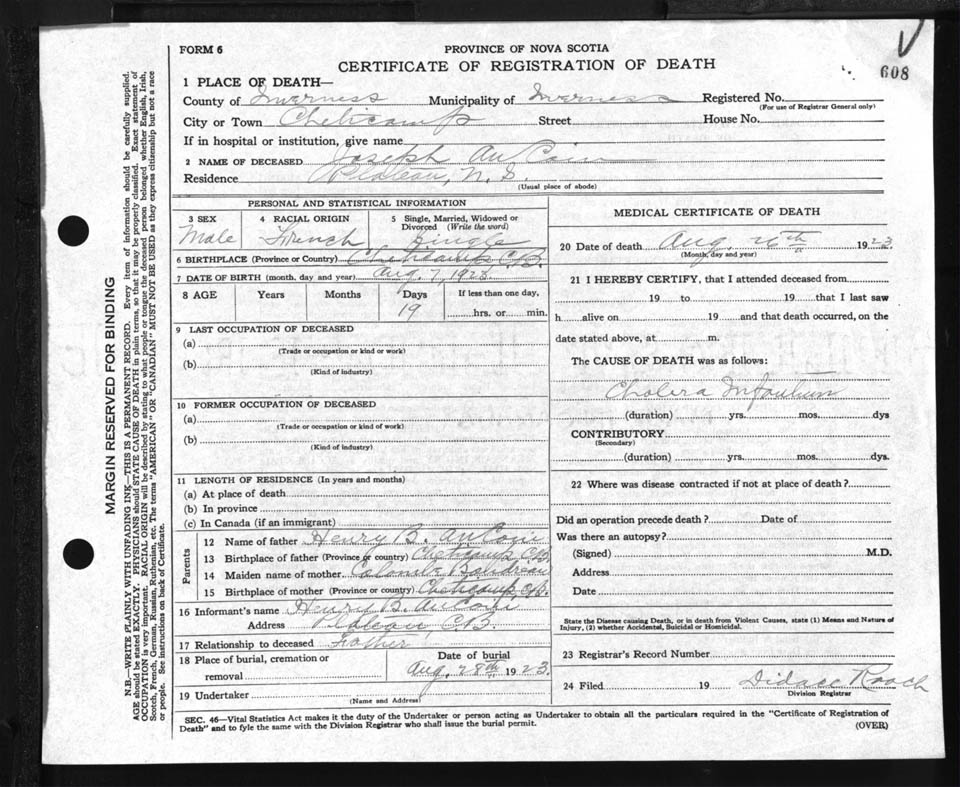 608
FORM 6
PROVINCE OF NOVA SCOTIA
CERTIFICATE OF REGISTRATION OF DEATH
1 PLACE OF DEATH—
County of Inverness Municipality of Inverness Registered No.
(For use of Registrar General only)
City or Town Cheticamp Street House No.
If in hospital or institution, give name
2 NAME OF DECEASED Joseph AuCoin
Residence Plateau, N.S.
(Usual place of abode)
PERSONAL AND STATISTICAL INFORMATION
3 SEX 4 RACIAL ORIGIN 5 Single, Married, Widowed or
Divorced (Write the word)
Male French Single
6 BIRTHPLACE (Province or Country) Cheticamp C.B.
7 DATE OF BIRTH (month, day and year) Aug. 7, 1923
8 AGE Years Months Days If less than one day,
19 hrs. or min.
9 LAST OCCUPATION OF DECEASED
(a)
(Trade or occupation or kind or work)
(b)
(Kind of industry)
10 FORMER OCCUPATION OF DECEASED
(a)
(Trade or occupation or kind of work)
(b)
(Kind of industry)
11 LENGTH OF RESIDENCE (In years and months)
(a) At place of death
(b) In province
(c) In Canada (if an immigrant)
Parents
12 Name of father Henry B. AuCoin
13 Birthplace of father (Province or country) Cheticamp C.B.
14 Maiden name of mother Colombe Boudreau
15 Birthplace of mother (Province or country) Cheticamp, C.B.
16 Informant's name Henry B. AuCoin
Address Plateau, C.B.
17 Relationship to deceased Father
18 Place of burial, cremation or Date of burial
removal Aug. 28th 1923
19 Undertaker
(Name and Address)
MEDICAL CERTIFICATE OF DEATH
20 Date of death Aug. 26th 1923
(Month, day and year)
21 I HEREBY CERTIFY, that I attended deceased from
19 to 19 that I last saw
h alive on 19 and that death occurred, on the
date stated above, at m.
The CAUSE OF DEATH was as follows:
Cholera Infantum
(duration) yrs. mos. dys
CONTRIBUTORY
(Secondary)
(duration) yrs. mos. dys.
22 Where was disease contracted if not at place of death?
Did an operation precede death? Date of
Was there an autopsy?
(Signed) M.D.
Address
Date
State the Disease causing Death, or in death from Violent Causes, state (1) Means and Nature of
Injury, (2) whether Accidental, Suicidal or Homicidal.
23 Registrar's Record Number
24 Filed 19 Didace Roach
Division Registrar
SEC. 46—Vital Statistics Act makes it the duty of the Undertaker or person acting as Undertaker to obtain all the particulars required in the "Certificate of Registration of
Death" and to fyle the same with the Division Registrar who shall issue the burial permit.
(OVER)
MARGIN RESERVED FOR BINDING
N.B.—WRITE PLAINLY WITH UNFADING INK—THIS IS A PERMANENT RECORD. Every item of information should be carefully supplied.
AGE should be stated EXACTLY. PHYSICIANS should STATE CAUSE OF DEATH in plain terms, so that it may be properly classified. Exact statement of
OCCUPATION is very important. RACIAL ORIGIN will be described by stating to what people or tongue the deceased person belonged whether English, Irish,
Scotch, French, German, Russian, Ruthenian, etc. The terms "AMERICAN" OR "CANADIAN" MUST NOT BE USED as they express citizenship but not a race
or people. See instructions on back of Certificate.